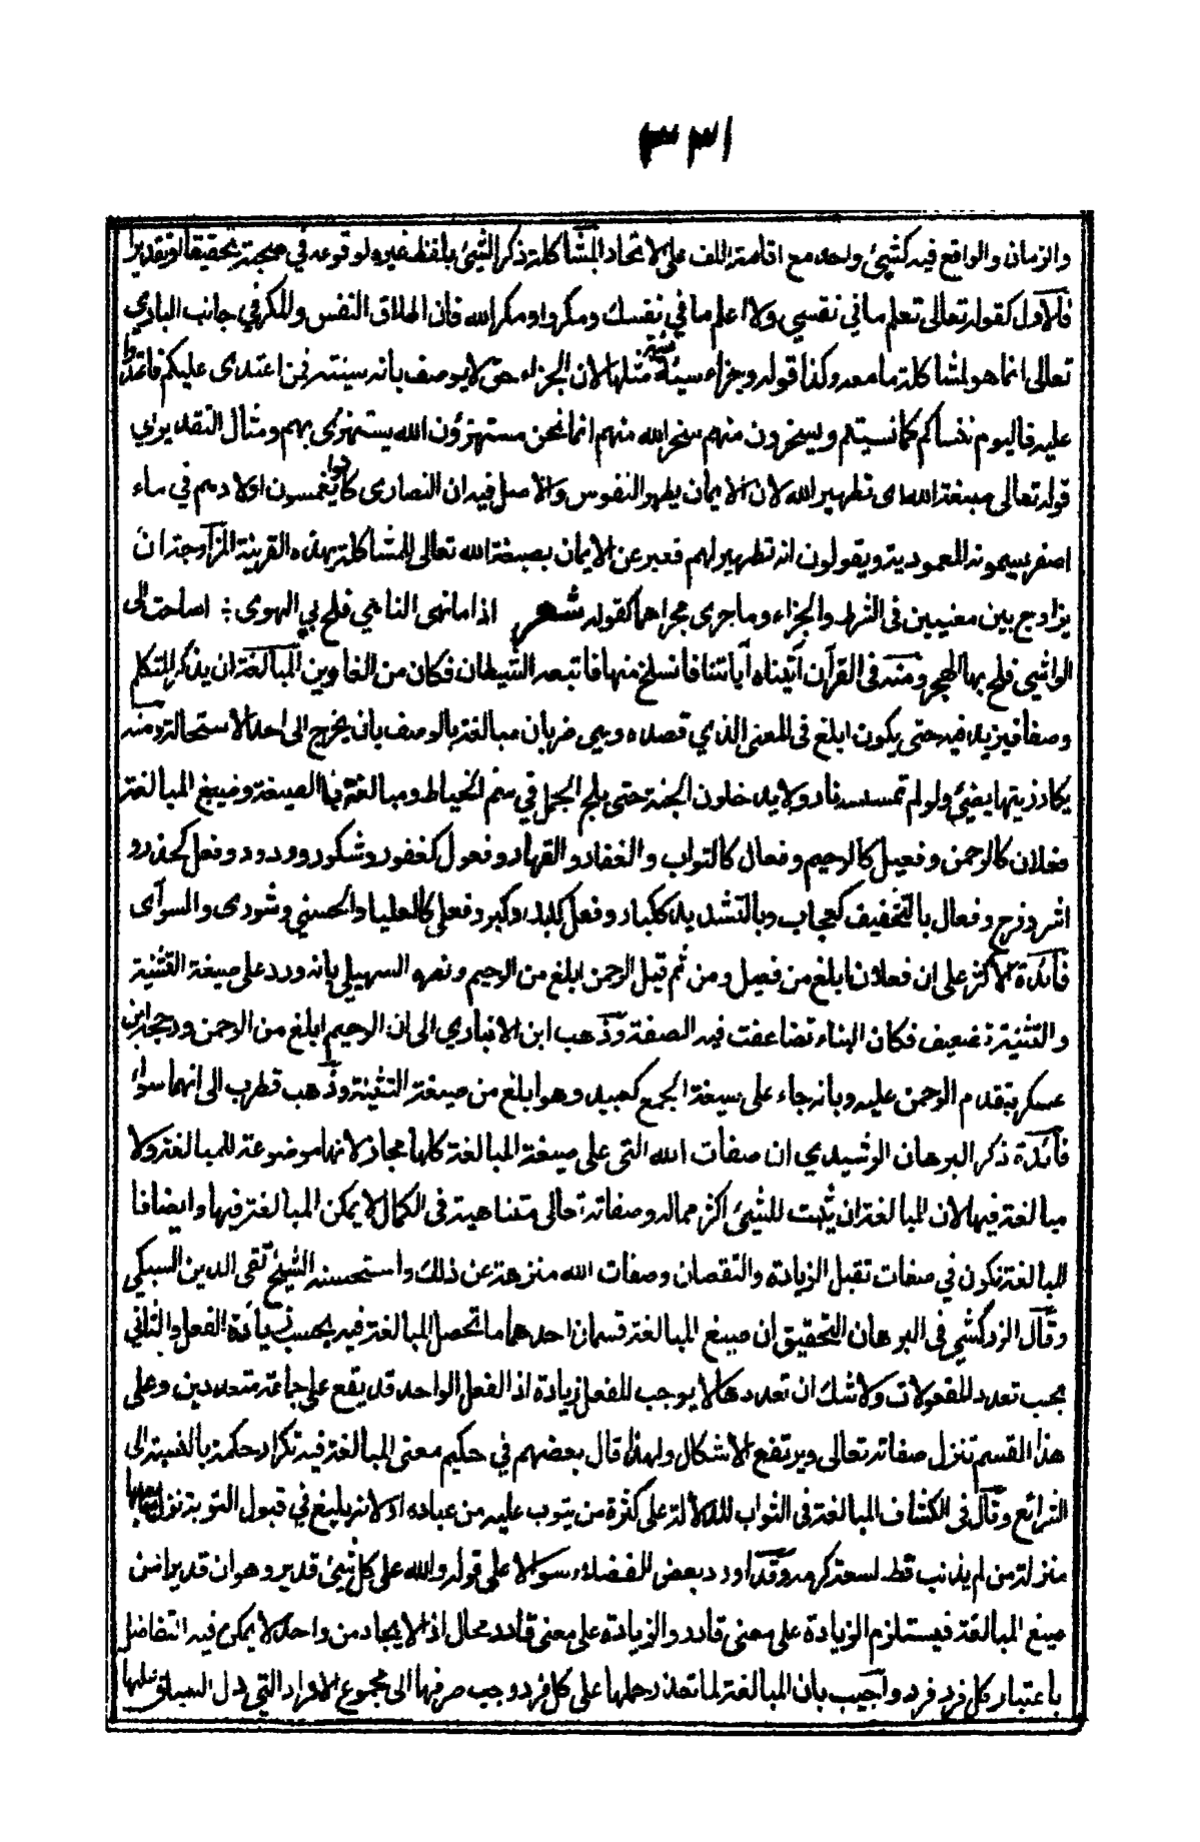 ٣٣١
والزمان والواقع فيه كشيئ واحد مع اقامة اللف على الاتحاد المشاكلة ذكر الشيئ بلفظ غيره لوقوعه في صحبته تحقيقا او تقديرا
فالاول كقوله تعالى تعلم ما في نفسي ولا اعلم ما في نفسك ومكروا ومكر الله فان اطلاق النفس والمكر في جانب الباري
تعالى انما هو لمشاكلة ما معه وكذا قوله وجزاء سيئة سيئة مثلها لان الجزاء حق لا يوصف بانه سيئة فمن اعتدى عليكم فاعتدوا
عليه فاليوم ننساكم كما نسيتم ويسخرون منهم سخر الله منهم انما نحن مستهزؤن الله يستهزئ بهم ومثال التقديري
قوله تعالى صبغة الله اى تطهير الله لان الايمان يطهر النفوس والاصل فيه ان النصارى كانوا يغمسون اولادهم في ماء
اصفر يسمونه المعمودية ويقولون انه تطهير لهم فعبر عن الايمان بصبغة الله تعالى للمشاكلة بهذه القرينة المزاوجة ان
يزاوج بين معنيين فى الشرط والجزاء وما جرى مجراهما كقوله شعر اذا ما نهى الناهي فلج بي الهوى ؛ اصاخت الى
الواشي فلج بها الهجر ومنه فى القرآن آتيناه آياتنا فانسلخ منها فاتبعه الشيطان فكان من الغاوين المبالغة ان يذكر المتكلم
وصفا فيزيد فيه حتى يكون ابلغ فى المعنى الذي قصده وهي ضربان مبالغة بالوصف بان يخرج الى احد الاستحالة ومنه
يكاد زيتها يضيئ ولو لم تمسسه نار ولا يدخلون الجنة حتى يلج الجمل في سم الخياط ومبالغة فى الصيغة وصيغ المبالغة
فعلان كالرحمن وفعيل كالرحيم وفعال كالتواب والغفار والقهار وفعول كغفور وشكور وودود وفعل كحذر و
اشر وفرح وفعال بالتخفيف كعجاب وبالتشديد ككبار وفعل كلبد وكبر وفعلى كالعليا والحسنى وشورى والسوآى
فائدة الاكثر على ان فعلان ابلغ من فعيل ومن ثم قيل الرحمن ابلغ من الرحيم ونصره السهيلي بانه ورد على صيغة التثنية
والتثنية تضعيف فكان البناء تضاعفت فيه الصفة وذهب ابن الانباري الى ان الرحيم ابلغ من الرحمن ورجحه ابن
عسكر بتقدم الرحمن عليه وبانه جاء على صيغة الجمع كعبيد وهو ابلغ من صيغة التثنية وذهب قطرب الى انهما سواء
فائدة ذكر البرهان الرشيدي ان صفات الله التى على صيغة المبالغة كلها مجاز لانها موضوعة للمبالغة ولا
مبالغة فيها لان المبالغة ان يثبت للشيئ اكثر مما له وصفاته تعالى متناهية فى الكمال لا يمكن المبالغة فيها وايضا فا
لمبالغة تكون في صفات تقبل الزيادة والنقصان وصفات الله منزهة عن ذلك واستحسنه الشيخ تقى الدين السبكي
وقال الزركشي فى البرهان التحقيق ان صيغ المبالغة قسمان احدهما ما تحصل المبالغة فيه بحسب زيادة الفعل والثاني
بحسب تعدد المفعولات ولا شك ان تعددها لا يوجب للفعل زيادة اذ الفعل الواحد قد يقع على جماعة متعددين وعلى
هذا القسم تنزل صفاته تعالى ويرتفع الاشكال ولهذا قال بعضهم في حكيم معنى المبالغة فيه تكرار حكمة بالنسبة الى
الشرائع وقال فى الكشاف المبالغة فى التواب للدلالة على كثرة من يتوب عليه من عباده او لانه بليغ في قبول التوبة نزل صاحبها
منزلة من لم يذنب قط لسعة كرمه وقد اورد بعض الفضلاء سوالا على قوله والله على كل شيئ قدير وهو ان قديرا من
صيغ المبالغة فيستلزم الزيادة على معنى قادر والزيادة على معنى قادر محال اذ الايجاد من واحد لا يمكن فيه التفاضل
باعتبار كل فرد فرد واجيب بان المبالغة لما تعذر حملها على كل فرد وجب صرفها الى مجموع الافراد التي دل السياق عليها